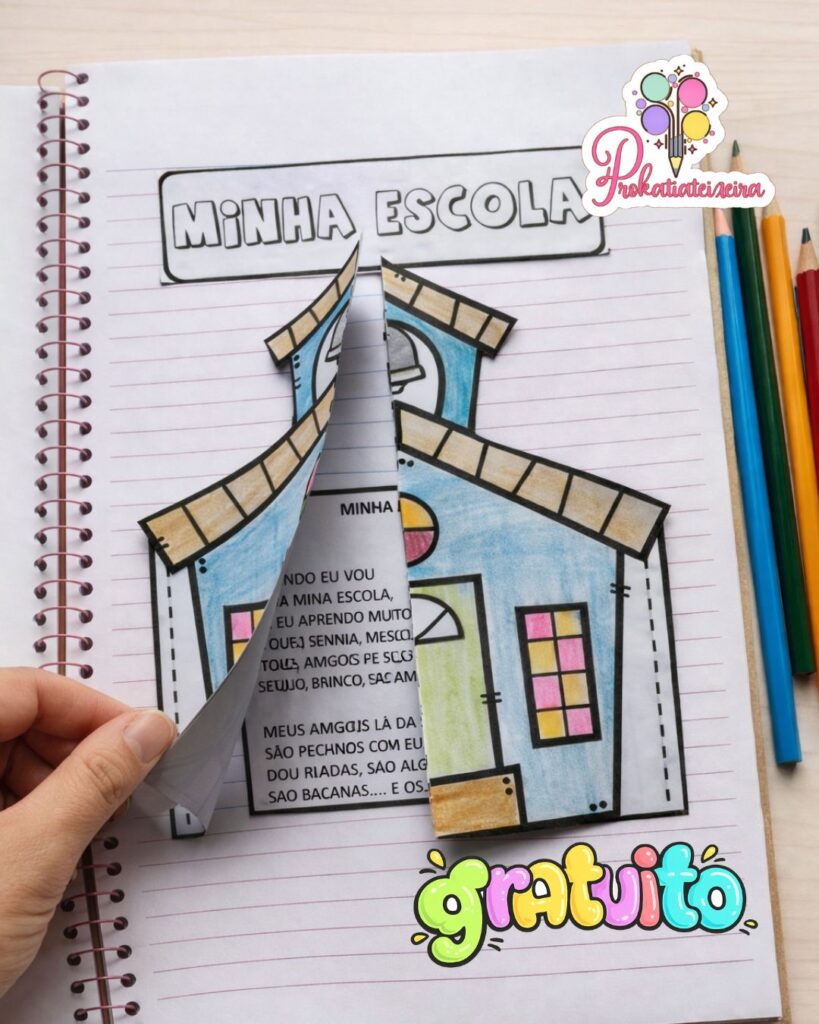 MINHA ESCOLA
Prokatiateixeira
MINHA
NDO EU VOU
A MINA ESCOLA,
EU APRENDO MUITO
SENNIA, MESCL
AMGOIS PE
BRINCO, SAC AM
MEUS AMGOIS LÀ DA
SÃO PECHNOS COM EU
DOU RIADAS, SAO ALG
SAO BACANAS.... E OS
gratuito